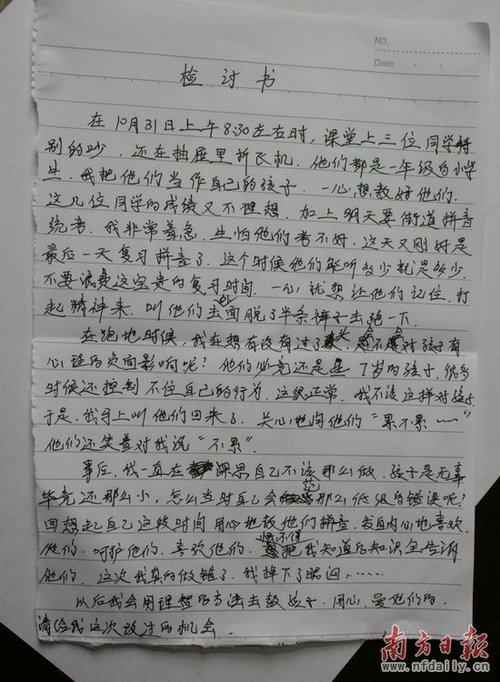 NO.
Date
检讨书
在10月31日上午8:30左右时,课堂上三位同学特
别的吵,还在抽屉里折飞机。他们都是一年级的小学
生,我把他们当作自己的孩子,一心想教好他们。
这几位同学的成绩又不理想,加上明天要街道拼音
统考,我非常着急,生怕他们考不好。这天又刚好是
最后一天复习拼音了,这个时候他们能听多少就是多少,
不要浪费这宝贵的复习时间,一心就想让他们记住,打
起精神来,叫他们去外面脱了半条裤子去跑一下。
在跑地时候,我在想有没有过了头,会不会对孩子有
心理的负面影响呢?他们必竟还是7岁的孩子,很多
时候还控制不住自己的行为,这很正常,我不该这样对孩子
于是,我马上叫他们回来了,关心地问他们“累不累……”
他们还笑着对我说“不累”。
事后,我一直在深思自己不该那么做,孩子是无辜
毕竟还那么小,怎么当时自己会犯那么低级的错误呢?
回想起自己这段时间用心地教他们拼音,发自内心地喜欢
他们、呵护他们、喜欢他们,恨不得把我知道的知识全告诉
他们,这次我真的做错了,我掉下了眼泪……
以后我会用理智的方法去教孩子,用心,爱他们的,
请给我这次改过的机会。
南方日报
www.nfdaily.cn